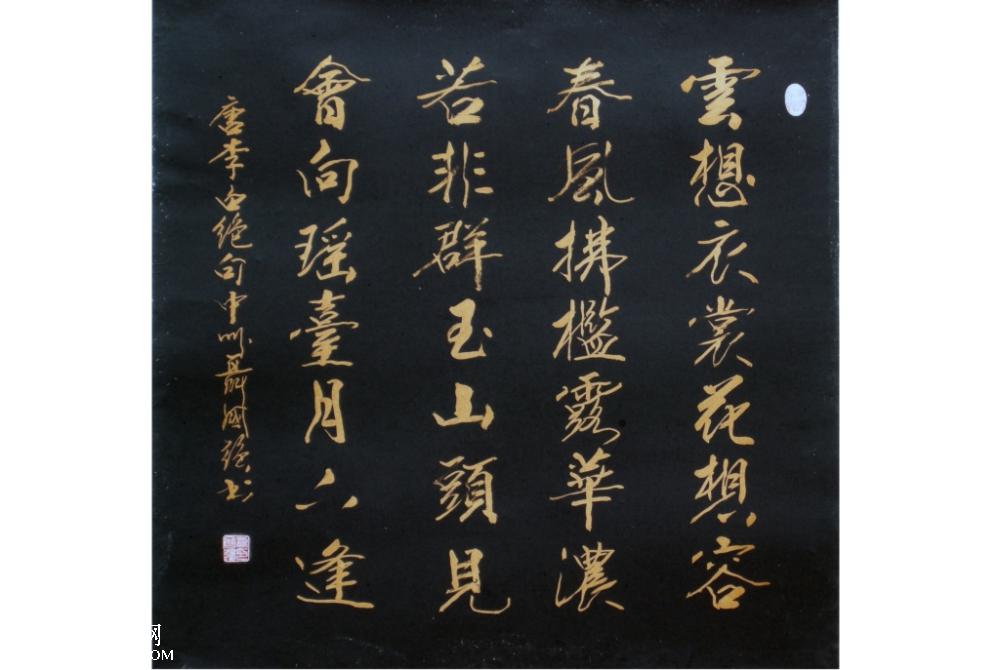 雲想衣裳花想容
春風拂檻露華濃
若非群玉山頭見
會向瑶臺月下逢
唐李白絶句中州聶國强书
网
OM